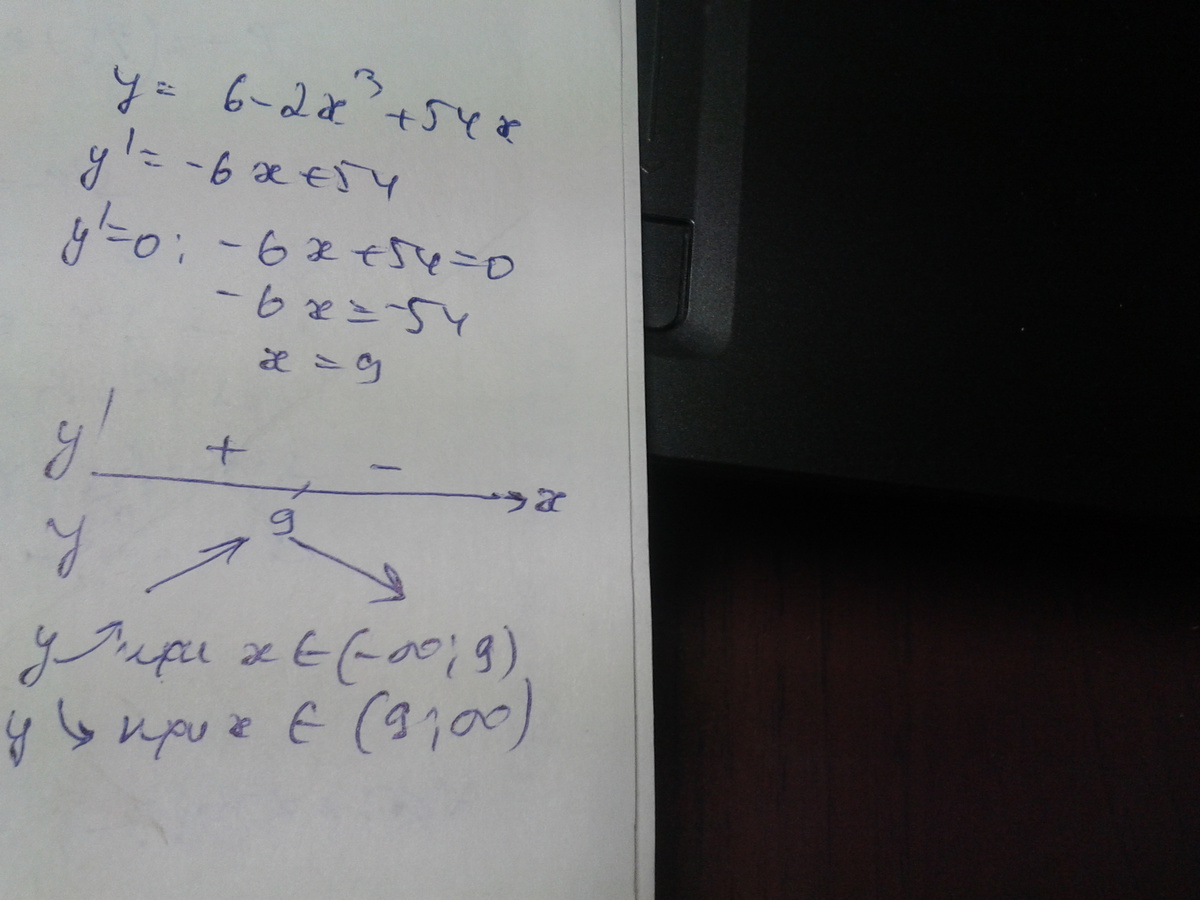 y = 6 - 2x³ + 54x
y' = -6x + 54
y' = 0; -6x + 54 = 0
-6x = -54
x = 9
y' + -
x
y 9
y ↗ при x ∈ (-∞; 9)
y ↘ при x ∈ (9; ∞)